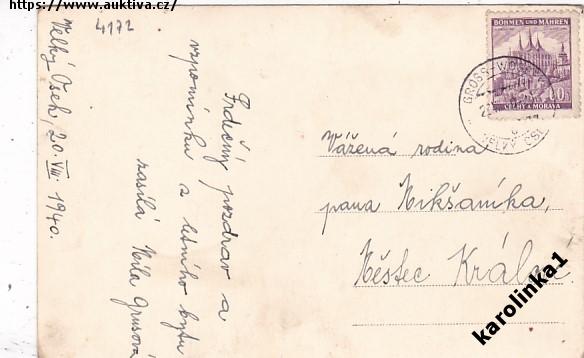 https://www.auktiva.cz/
4172
Velký Osek, 20. VIII. 1940.
Srdečný pozdrav a
vzpomínku z letního bytu
zasílá Míla Grusová
BÖHMEN UND MÄHREN
ČECHY A MORAVA
GROSS-WOSSEK
VELKÝ OSEK
Vážená rodina
pana Mikšaníka,
Městec Králové
karolinka1